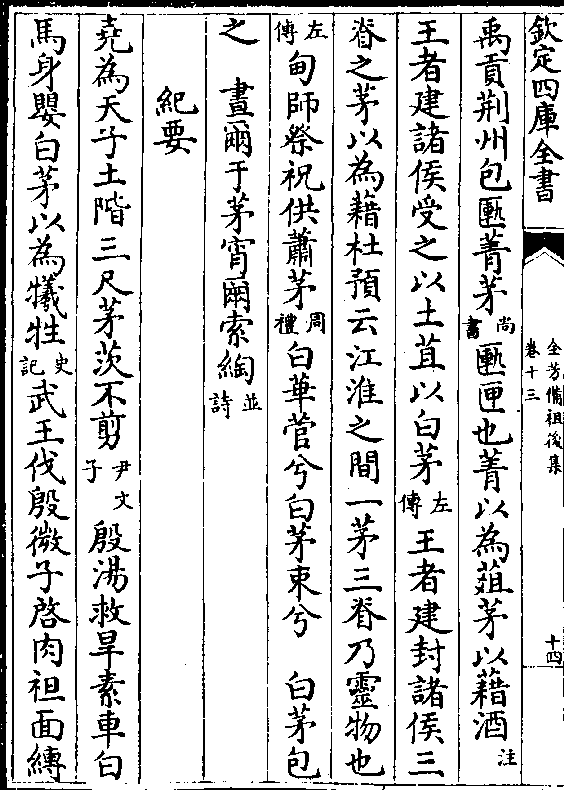 欽定四庫全書
全芳備祖後集
卷十三
十四
禹貢荆州包匭菁茅尚書匭匣也菁以為葅茅以藉酒注
王者建諸侯受之以土苴以白茅左傳王者建封諸侯三
脊之茅以為藉杜預云江淮之間一茅三脊乃靈物也
左傳甸師祭祝供蕭茅周禮白華菅兮白茅束兮 白茅包
之 晝爾于茅宵爾索綯並詩
紀要
堯為天子土階三尺茅茨不剪尹文子殷湯救旱素車白
馬身嬰白茅以為犧牲史記武王伐殷微子啓肉袒面縛